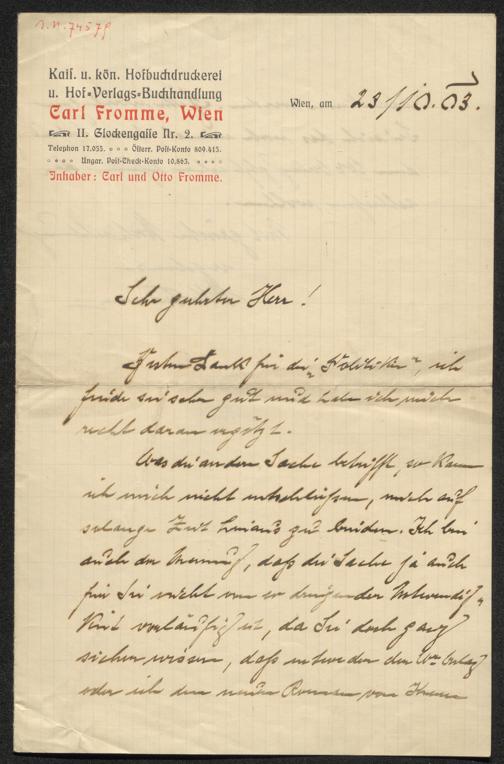 J.N. 74579
Kais. u. kön. Hofbuchdruckerei
u. Hof-Verlags-Buchhandlung
Carl Fromme, Wien
II. Glockengasse Nr. 2.
Telephon 17.053. Österr. Post-Konto 809.415.
Ungar. Post-Check-Konto 10.863.
Inhaber: Carl und Otto Fromme.
Wien, am 23/10.03.
Sehr geehrter Herr!
Vielen Dank für die „Politiker", ich
finde sie sehr gut und habe ich mich
recht daran ergötzt.
Was die andere Sache betrifft, so kann
ich mich nicht entschließen, mich auf
solange Zeit hinaus zu binden. Ich bin
auch der Meinung, daß die Sache ja auch
für Sie nicht von so dringender Notwendig-
keit vorläufig ist, da Sie doch ganz
sicher wissen, daß entweder der Wr. Verlag
oder ich den neuen Roman von Ihnen